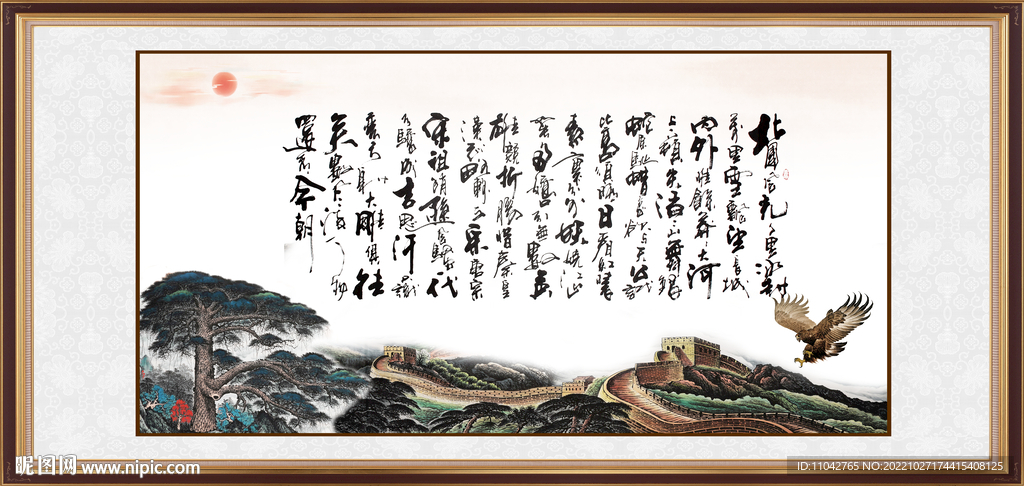 北國風光千里冰封
萬里雪飄望長城
內外惟餘莽莽大河
上下頓失滔滔山舞銀
蛇原馳蠟象欲与天公試
比高須晴日看紅裝
素裹分外妖嬈江山
如此多嬌引無數英
雄競折腰惜秦皇
漢武略輸文采唐宗
宋祖稍遜風騷一代
天驕成吉思汗只識
彎弓射大雕俱往
矣數風流人物
還看今朝
昵图网 www.nipic.com
ID:11042765 NO:20221027174415408125